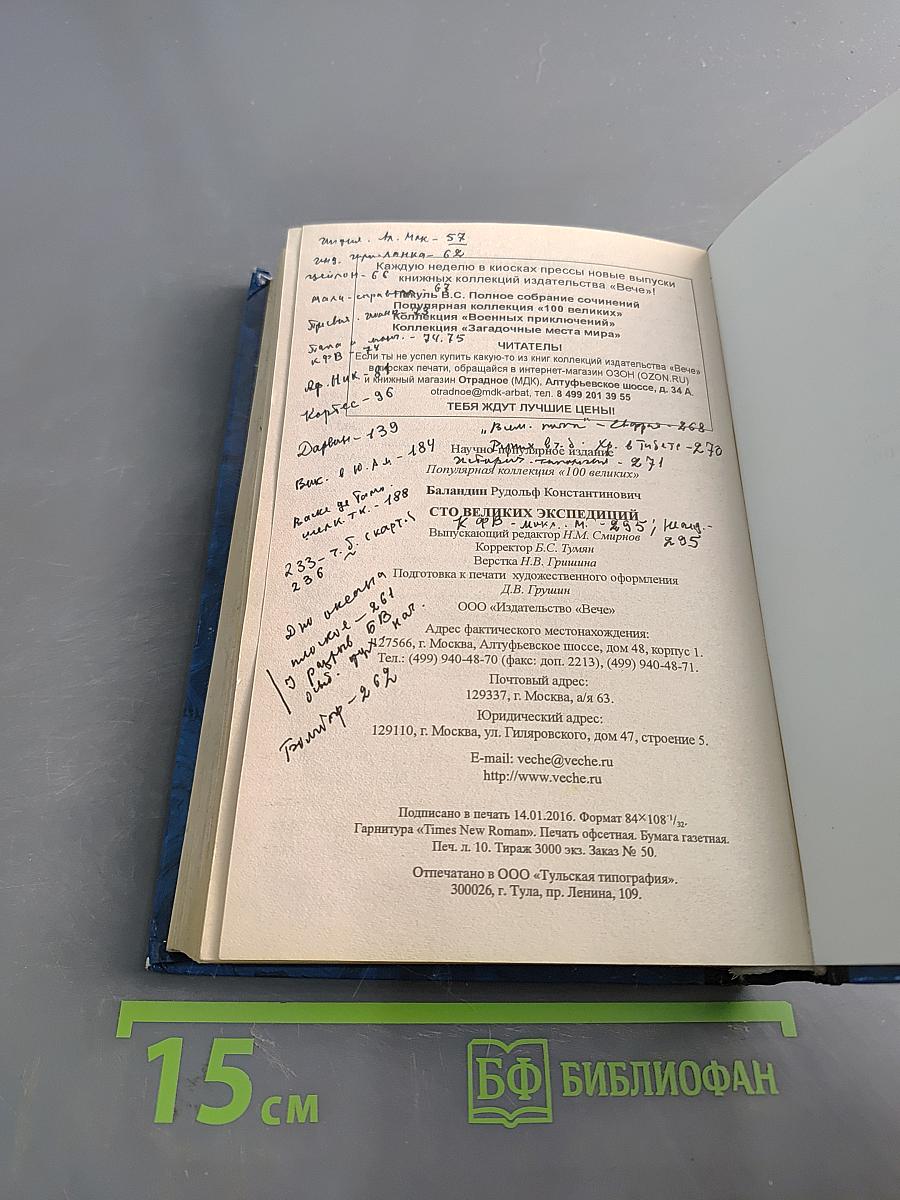 57
62
Цейлон - 66
67
Каждую неделю в киосках прессы новые выпуски
книжных коллекций издательства «Вече»!
Пикуль В.С. Полное собрание сочинений
Популярная коллекция «100 великих»
Коллекция «Военных приключений»
Коллекция «Загадочные места мира»
74.75
КФВ - 74
ЧИТАТЕЛЬ!
Если ты не успел купить какую-то из книг коллекций издательства «Вече»
в киосках печати, обращайся в интернет-магазин ОЗОН (OZON.RU)
и книжный магазин Отрадное (МДК), Алтуфьевское шоссе, д. 34 А.
otradnoe@mdk-arbat, тел. 8 499 201 39 55
ТЕБЯ ЖДУТ ЛУЧШИЕ ЦЕНЫ!
Кортес - 96
268
Дарвин - 139
в Тибете - 270
271
в Ю. Ам. - 184
Васко де Гама.
188
233 - т.б. (карт.)
236
Научно-популярное издание
Популярная коллекция «100 великих»
Баландин Рудольф Константинович
СТО ВЕЛИКИХ ЭКСПЕДИЦИЙ
КФВ - 295;
295
Выпускающий редактор Н.М. Смирнов
Корректор Б.С. Тумян
Верстка Н.В. Гришина
Подготовка к печати художественного оформления
Д.В. Грушин
ООО «Издательство «Вече»
Дно океана
плоское - 261
разрыв БВ
262
Адрес фактического местонахождения:
127566, г. Москва, Алтуфьевское шоссе, дом 48, корпус 1.
Тел.: (499) 940-48-70 (факс: доп. 2213), (499) 940-48-71.
Почтовый адрес:
129337, г. Москва, а/я 63.
Юридический адрес:
129110, г. Москва, ул. Гиляровского, дом 47, строение 5.
E-mail: veche@veche.ru
http://www.veche.ru
Подписано в печать 14.01.2016. Формат 84×108 1/32.
Гарнитура «Times New Roman». Печать офсетная. Бумага газетная.
Печ. л. 10. Тираж 3000 экз. Заказ № 50.
Отпечатано в ООО «Тульская типография».
300026, г. Тула, пр. Ленина, 109.
15 см
БФ БИБЛИОФАН